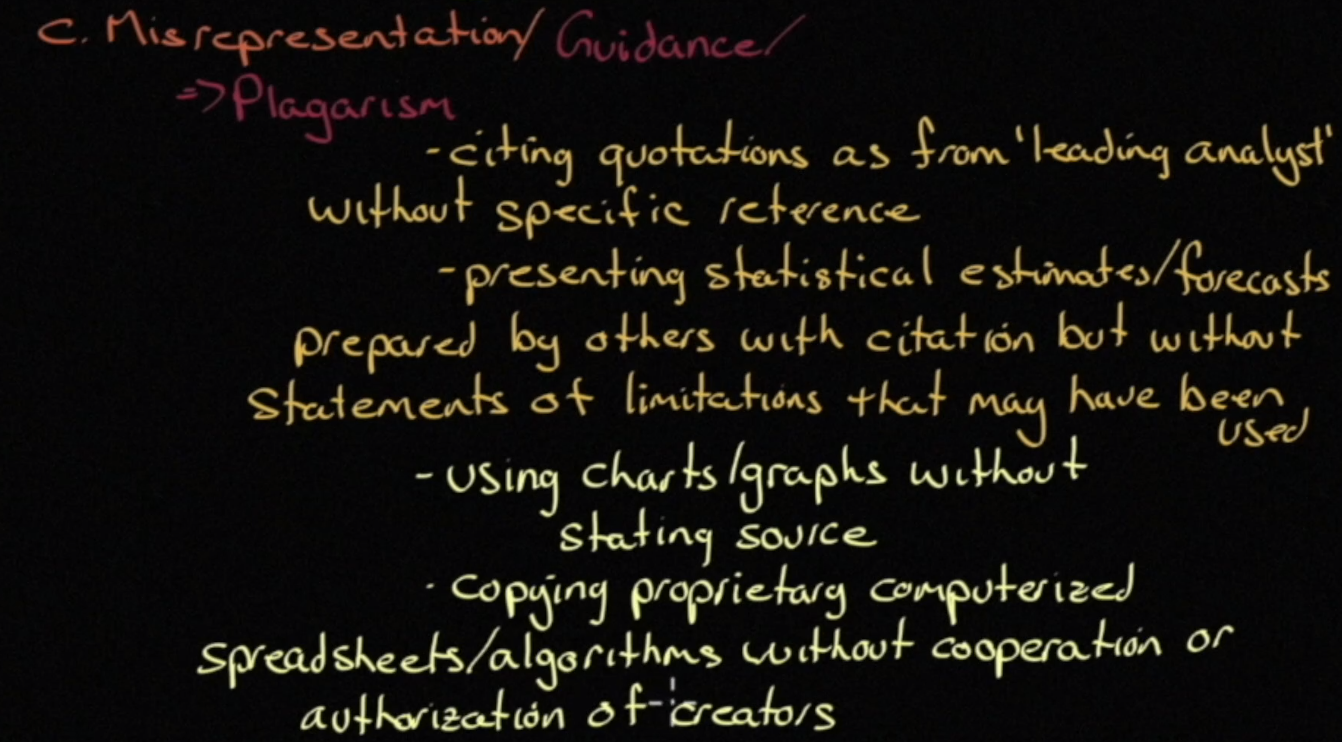 C. Misrepresentation/ Guidance/
=> Plagarism
- citing quotations as from 'leading analyst'
without specific reference
- presenting statistical estimates/forecasts
prepared by others with citation but without
statements of limitations that may have been
used
- using charts/graphs without
stating source
- copying proprietary computerized
spreadsheets/algorithms without cooperation or
authorization of creators